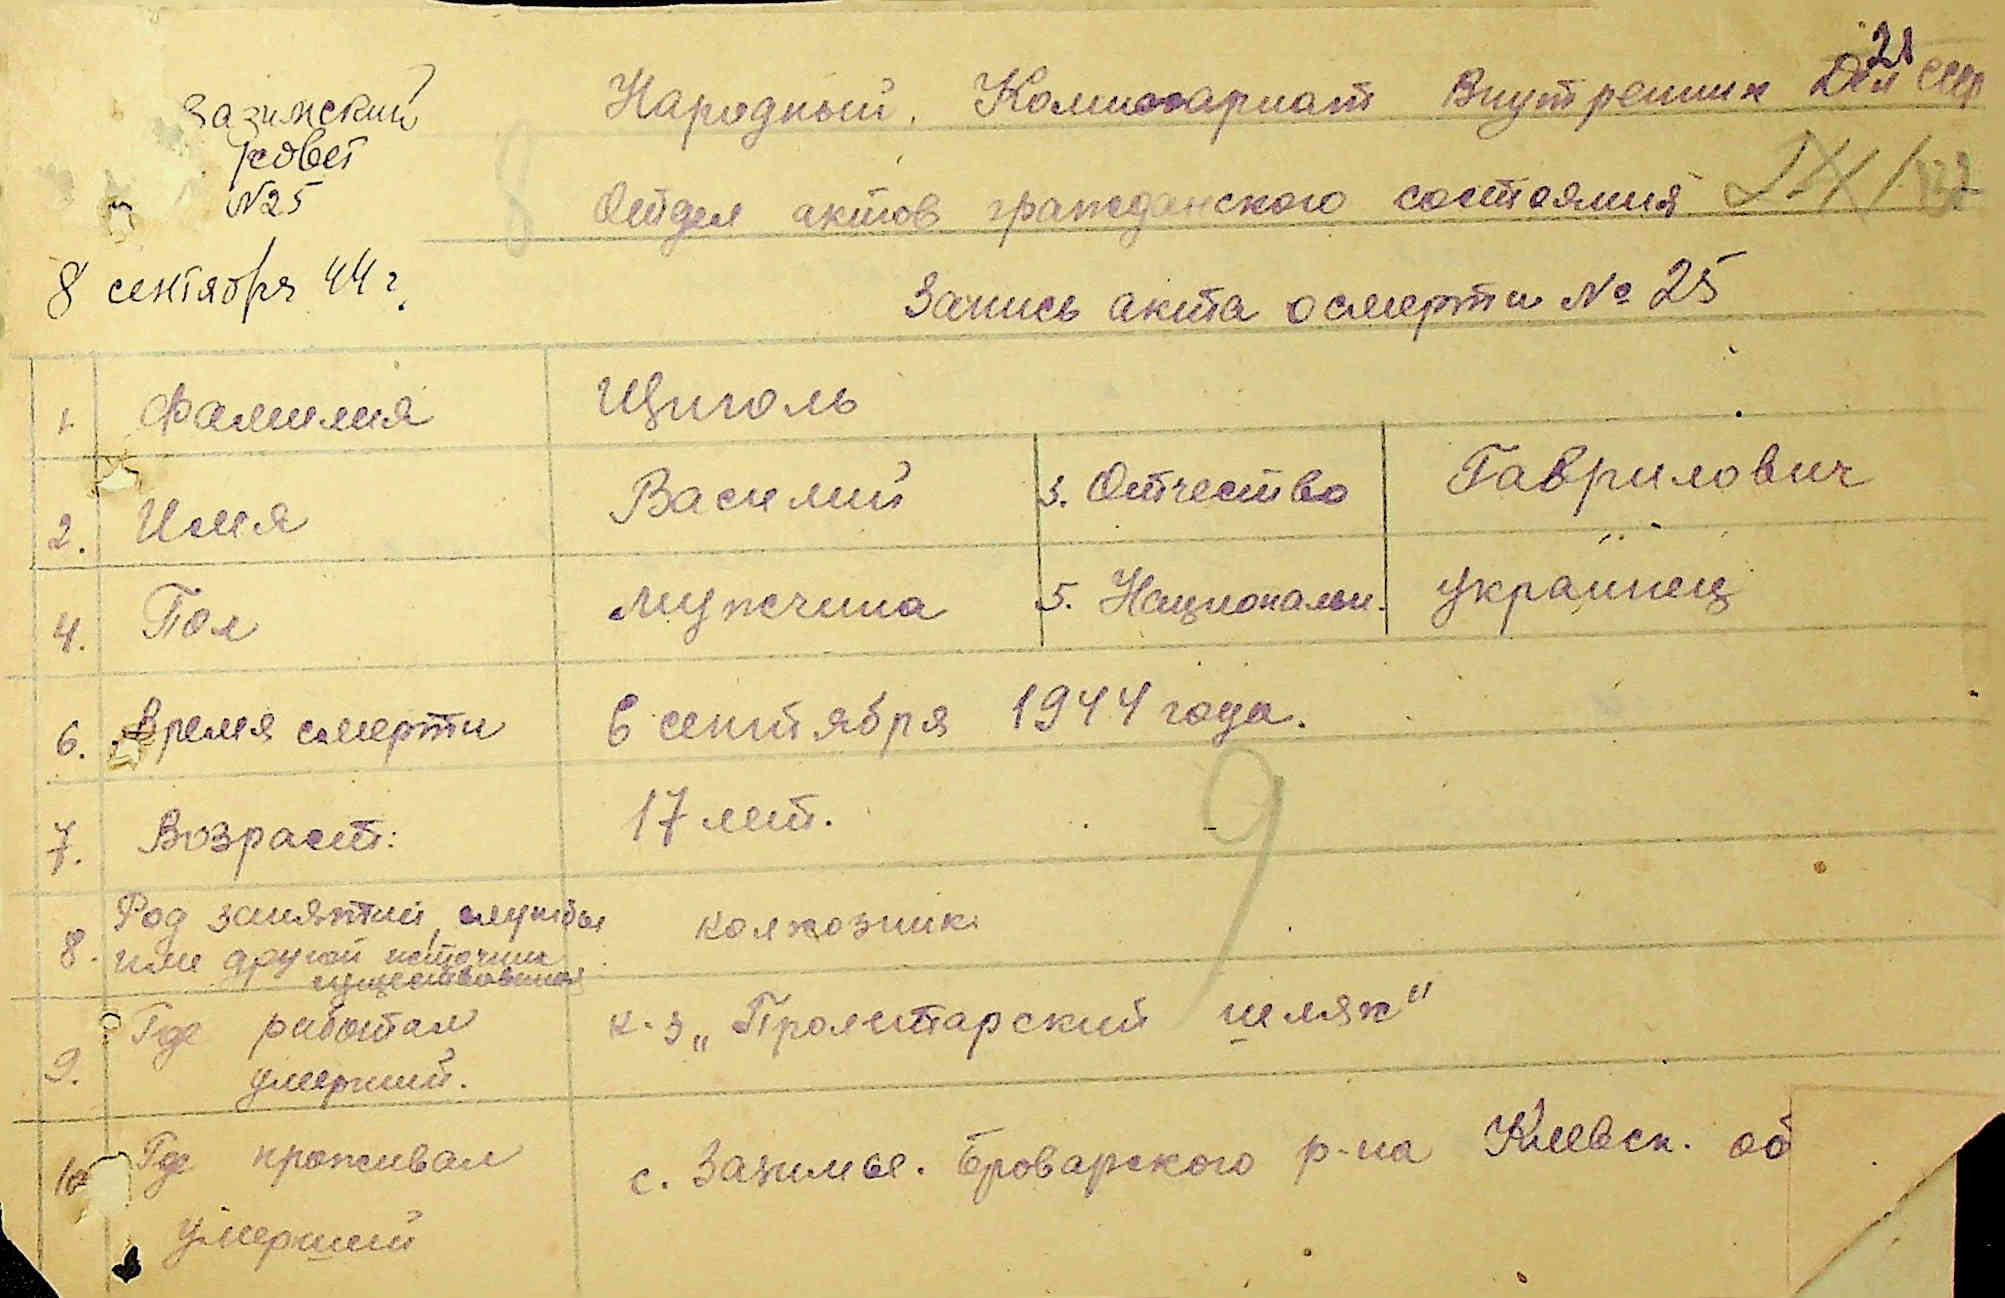 21
Зазимский
совет
№25
8 сентября 44 г.
Народный Комиссариат Внутренних Дел СССР
Отдел актов гражданского состояния
Запись акта о смерти № 25
1. Фамилия Щиголь
2. Имя Василий 3. Отчество Гаврилович
4. Пол мужчина 5. Националы. украинец
6. Время смерти 6 сентября 1944 года.
7. Возраст: 17 лет.
9
8. Род занятий, службы колхозник
или другой источник
существования
9. Где работал к-з „Пролетарский шлях"
умерший.
10 Где проживал с. Зазимье. Броварского р-на Киевск. об
умерший